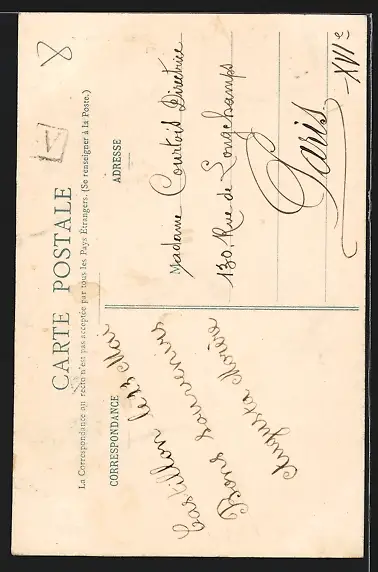 8
CARTE POSTALE
La Correspondance au recto n'est pas acceptée par tous les Pays Étrangers. (Se renseigner à la Poste.)
CORRESPONDANCE
ADRESSE
Castillon
Bons Souvenirs
Augusta
Madame Courtois Directrice
130, Rue de Longchamps
Paris
-XVIe